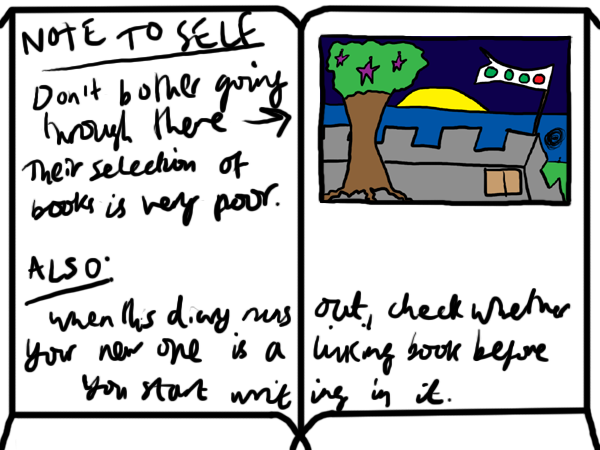 NOTE TO SELF
Don't bother going
through there →
Their selection of
books is very poor.
ALSO:
When this diary runs out, check whether
your new one is a linking book before
you start writing in it.